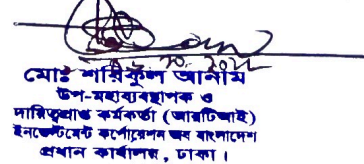 মোঃ শরিফুল আনাম
উপ-মহাব্যবস্থাপক ও
দায়িত্বপ্রাপ্ত কর্মকর্তা (আরটিআই)
ইনভেস্টমেন্ট কর্পোরেশন অব বাংলাদেশ
প্রধান কার্যালয়, ঢাকা।